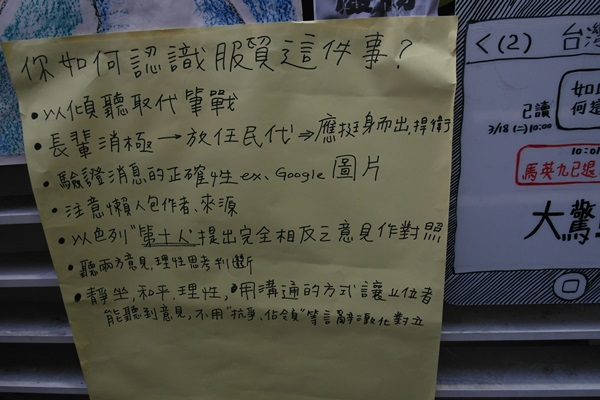 你如何認識服貿這件事?
•以傾聽取代筆戰
•長輩消極→放任民代⇒應挺身而出,捍衛
•驗證消息的正確性 ex. Google 圖片
•注意懶人包作者、來源
•以色列"第十人"提出完全相反之意見作對照
•聽兩方意見,理性思考判斷
•靜坐,和平.理性,用溝通的方式讓上位者
能聽到意見,不用"抗爭、佔領"等言辭激化對立
<(2) 台灣
已讀
3/18(二)10:00
如
何
10:01
馬英九已退
大驚